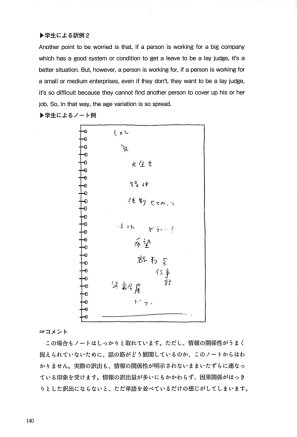 ▶学生による訳例2
Another point to be worried is that, if a person is working for a big company
which has a good system or condition to get a leave to be a lay judge, it's a
better situation. But, however, a person is working for, if a person is working for
a small or medium enterprises, even if they don't, they want to be a lay judge,
it's so difficult because they cannot find another person to cover up his or her
job. So, in that way, the age variation is so spread.
▶学生によるノート例
大企業
希望
仕事
☞コメント
この場合もノートはしっかりと取れています。ただし、情報の関係性がうまく
捉えられていないために、話の筋がどう展開しているのか、このノートからはわ
かりません。実際の訳出も、情報の関係性が明示されないままいたずらに連なっ
ている印象を受けます。情報の訳出量が多いにもかかわらず、因果関係がはっき
りとした訳出にならないと、ただ単語を並べているだけの感じがしてしまいます。
140